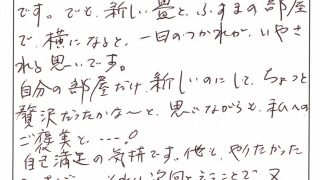 です。でも、新しい畳と、ふすまの部屋
で、横になると、一日のつかれが、いやさ
れる思いです。
自分の部屋だけ新しいのにして、ちょっと
贅沢だったかな〜と、思いながらも、私への
ご褒美と、……!
自己満足の気持です。他も、やりたかった